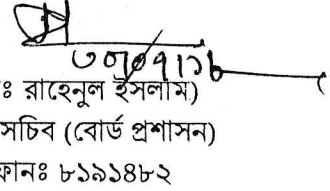 ঃ রাহেনুল ইসলাম)
সচিব (বোর্ড প্রশাসন)
ফোনঃ ৮১৯১৪৮২